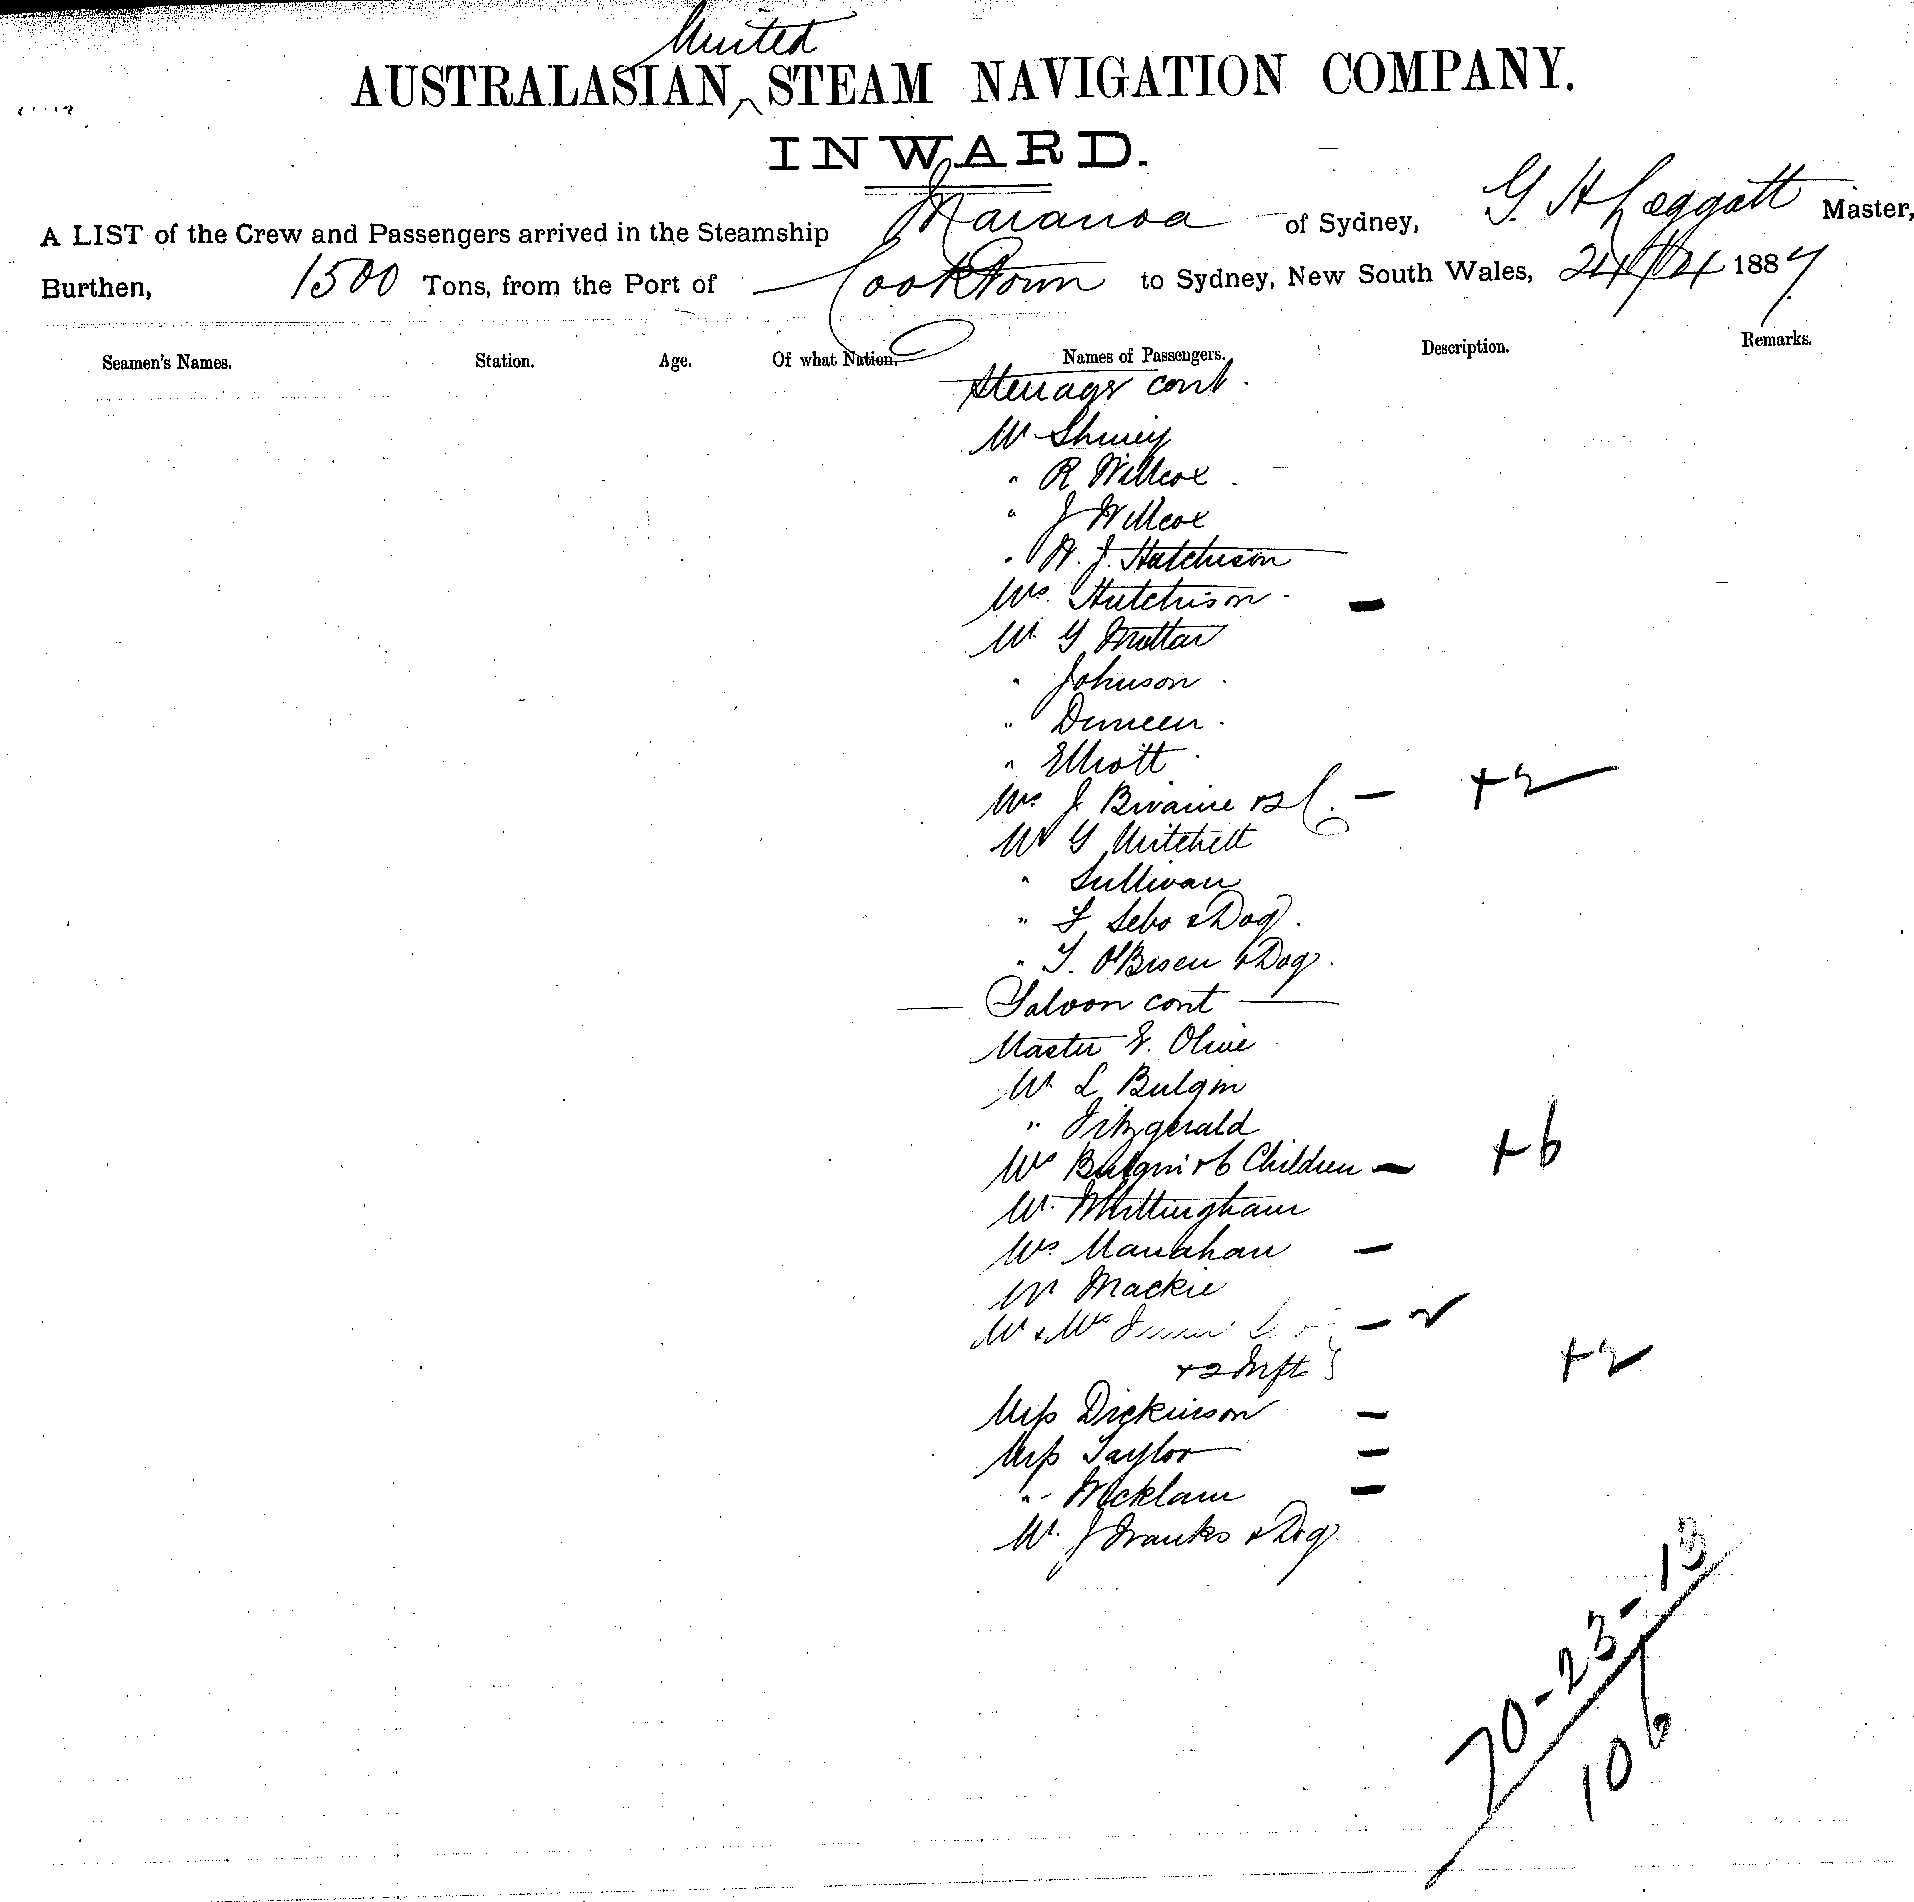 United
AUSTRALASIAN ^ STEAM NAVIGATION COMPANY.
INWARD.
A LIST of the Crew and Passengers arrived in the Steamship Maranoa of Sydney, G. H Leggatt Master,
Burthen, 1500 Tons, from the Port of Cooktown to Sydney, New South Wales, 1887
Seamen's Names. Station. Age. Of what Nation. Names of Passengers. Description. Remarks.
Steerage cont.
Mr
" R Willcox
" J Willcox
" H. J. Hutchison
Mrs. Hutchison -
Mr G
" Johnson
"
" Elliott
Mrs J +2 C. - +2
Mr G Mitchell
" Sullivan
" F Sebo & Dog.
" T. O'Brien & Dog.
— Saloon cont —
Master E. Olive
Mr L Bulgin
" Fitzgerald
Mrs Bulgin + 6 Children - +6
Mr. Whittingham
Mrs Manahan -
Mr Mackie
Mr & Mrs - 2
+2 Inft } +2
Miss Dickinson -
Miss Taylor -
" Micklam -
Mr. J Franks & Dog
70-23-13
106